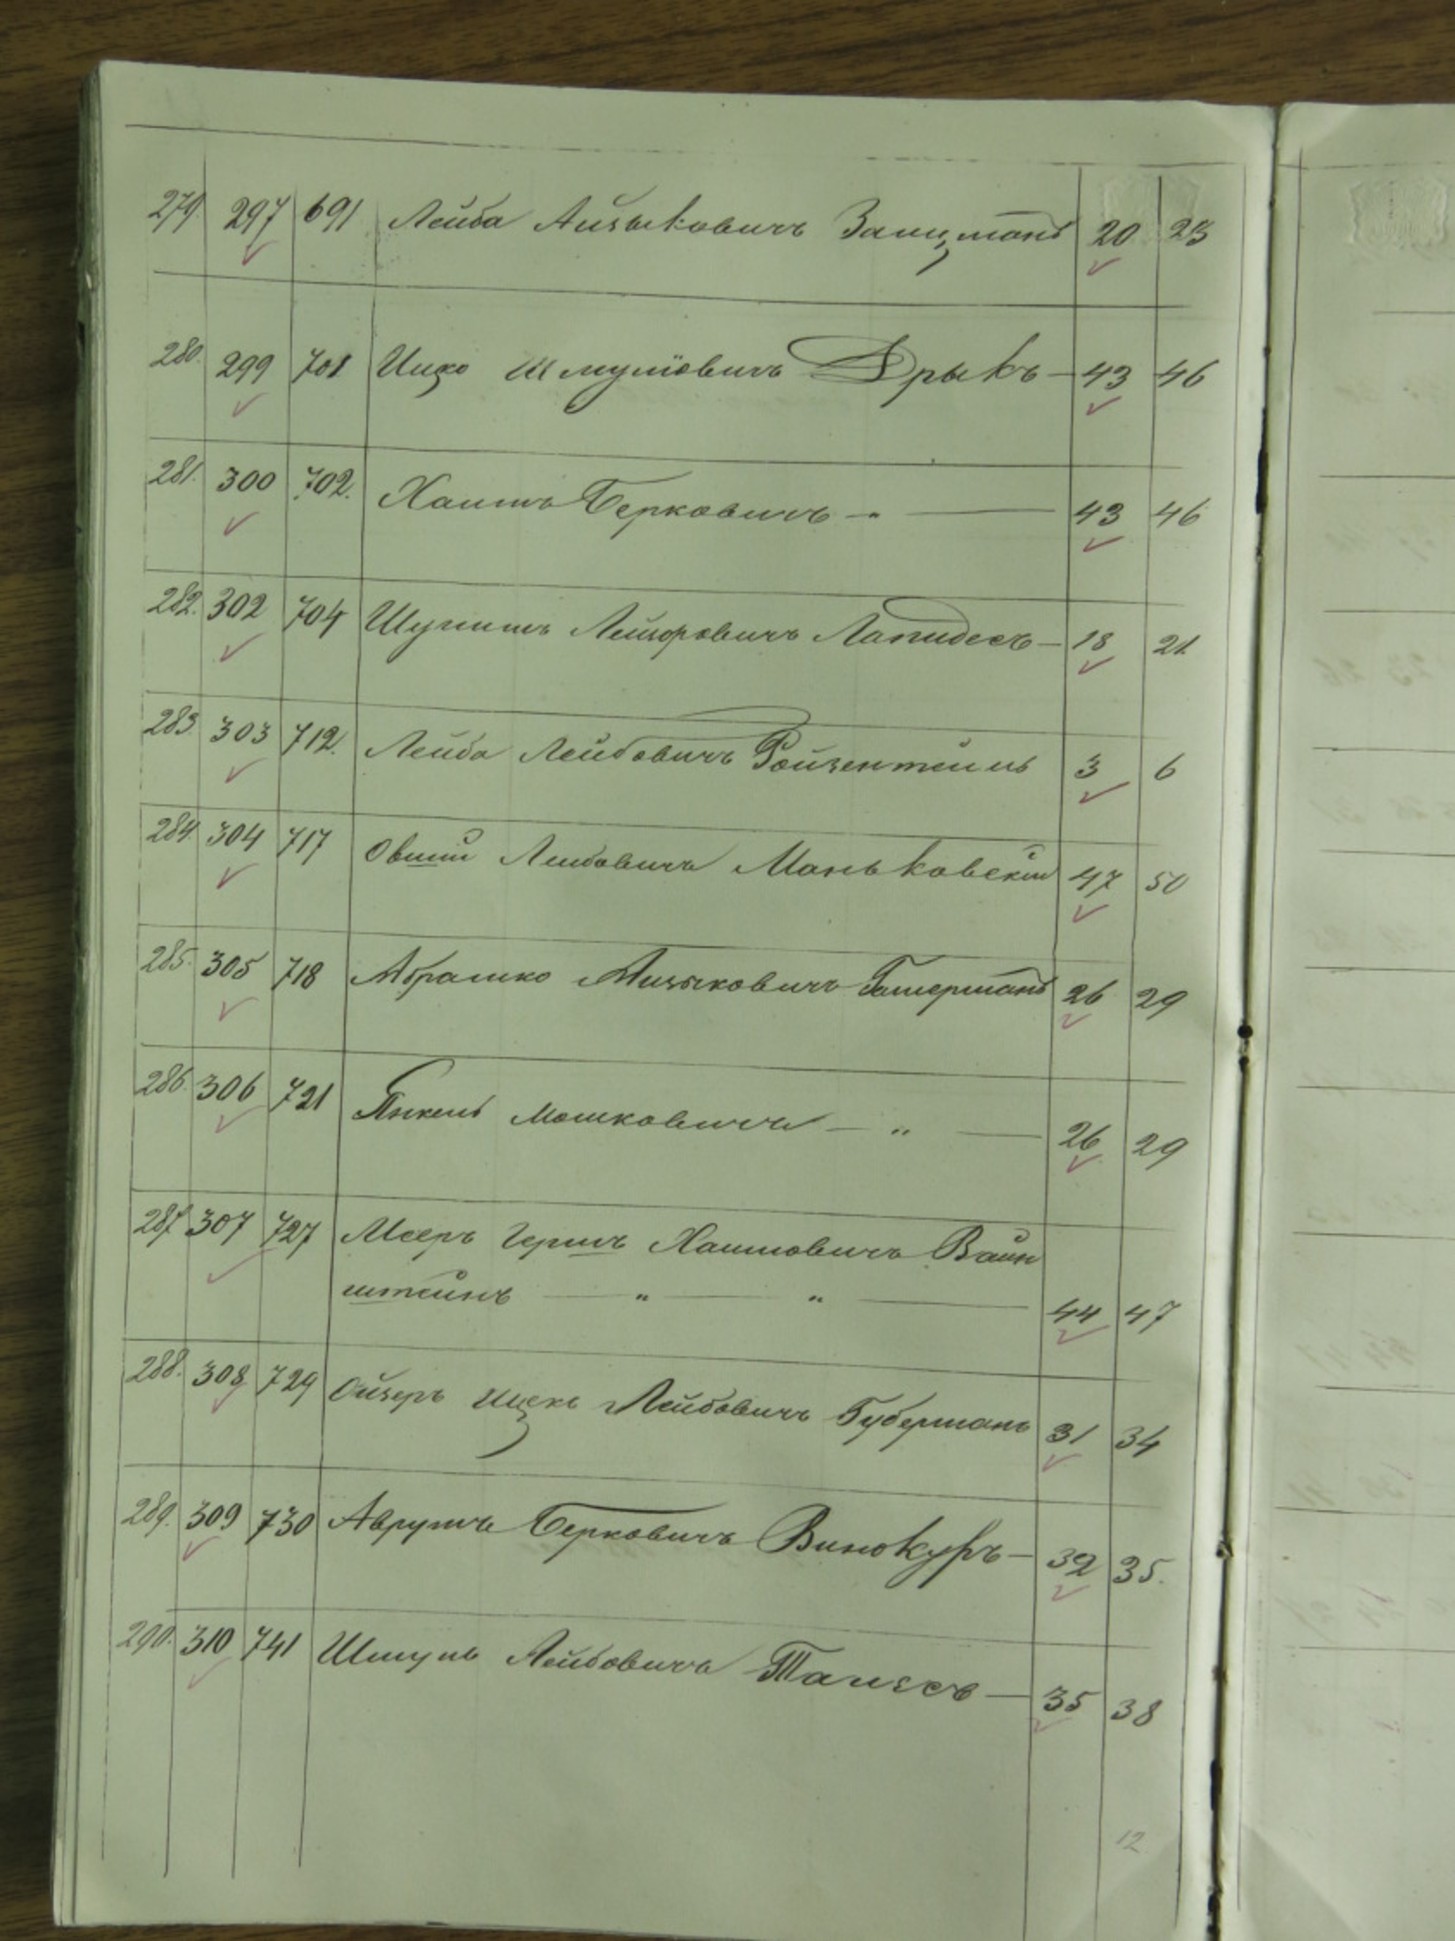 279. 297 691 Лейба Айзыковичъ Зальцманъ 20 23
280. 299 701 Ицко Шмулiовичъ Дрыкъ — 43 46
281. 300 702. Хаимъ Берковичъ — „ — 43 46
282. 302 704 Шулимъ Лейзоровичъ Лапидесъ — 18 21
283. 303 712. Лейба Лейбовичъ Ройзентейль 3 6
284. 304 717 Овшій Лейбовичъ Маньковскій 47 50
285. 305 718 Абрашко Айзыковичъ Гитерманъ 26 29
286. 306 721 Янкель Мошковичъ — „ — 26 29
287. 307 727 Мееръ Гершъ Хаимовичъ Вайн
штейнъ — „ — „ — 44 47
288. 308 729 Ойзеръ Ицекъ Лейбовичъ Губерманъ 31 34
289. 309 730 Аврумъ Берковичъ Винокуръ — 32 35.
290. 310 741 Шмуль Лейбовичъ — 35 38
12